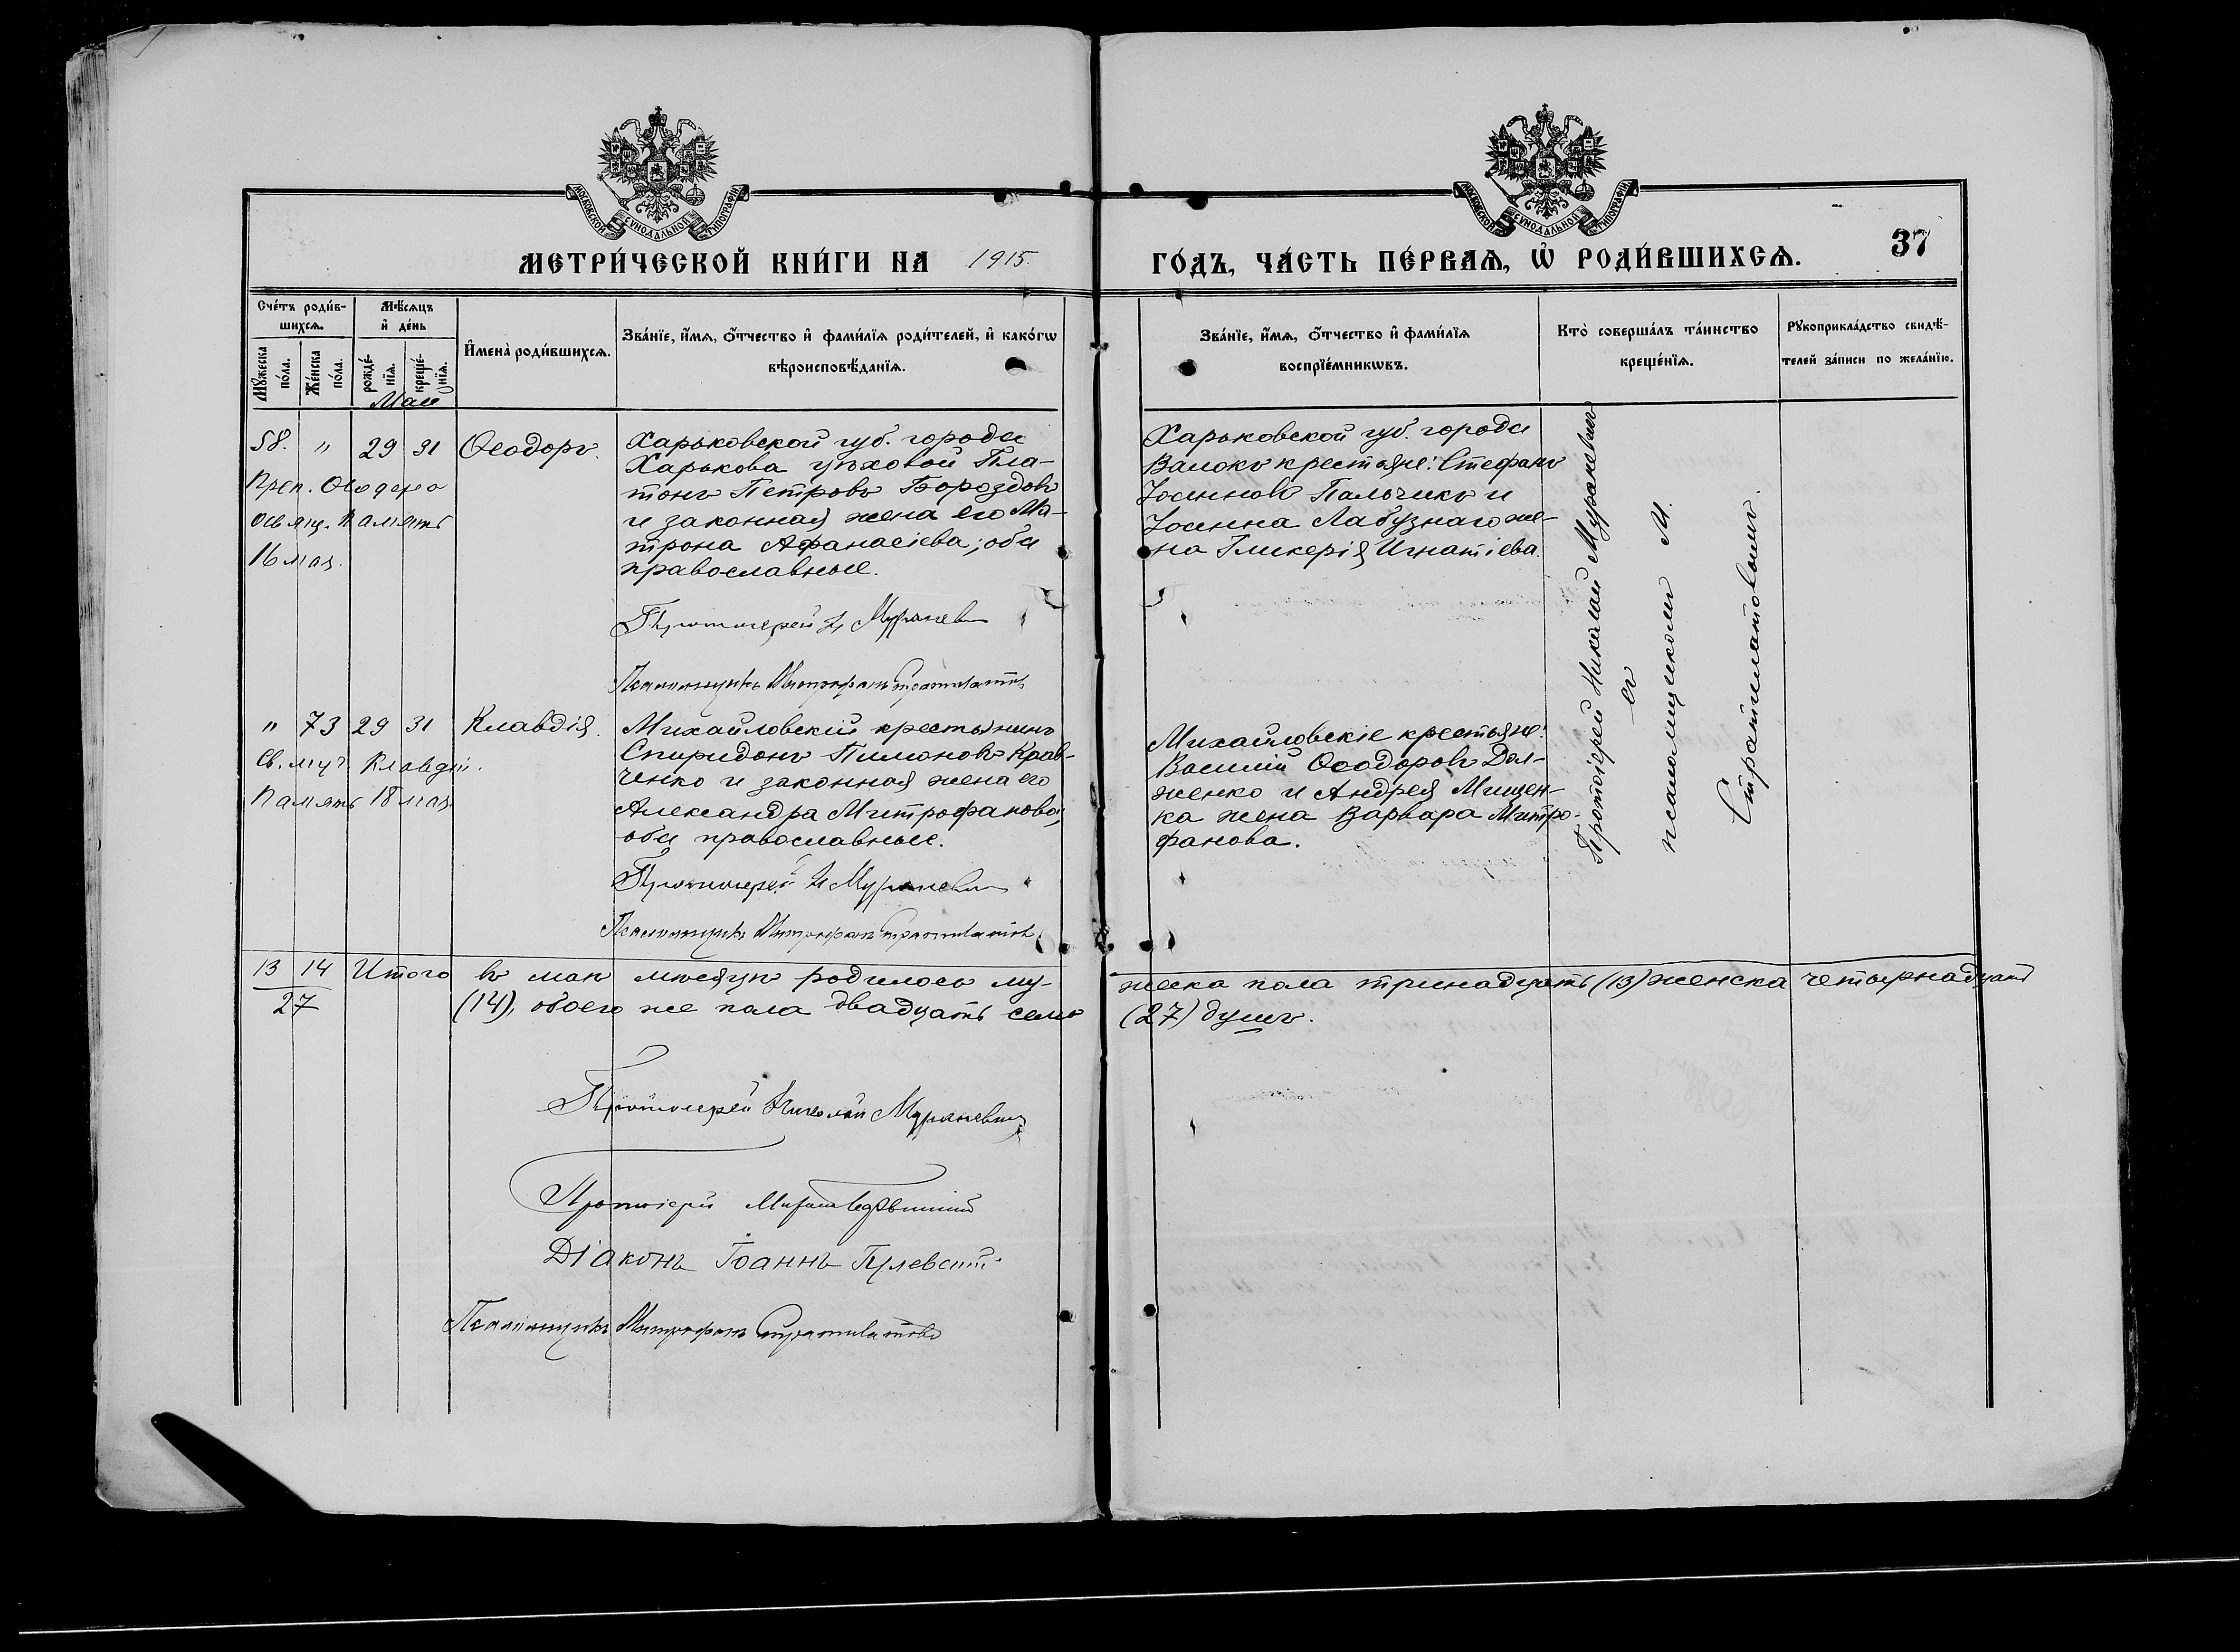 МОСКОВСКОЙ СУНОДАЛЬНОЙ ТИПОГРАФІИ
МОСКОВСКОЙ СУНОДАЛЬНОЙ ТИПОГРАФІИ
МЕТРИ́ЧЕСКОЙ КНИ́ГИ НА 1915.
ГО́ДЪ, ЧА́СТЬ ПЕ́РВАѦ, Ѡ҆ РОДИ́ВШИХСѦ.
37
Сче́тъ роди́в-
шихсѧ.
Мѣ́сѧцъ
и҆ де́нь
Мꙋ́жеска
по́ла.
Же́нска
по́ла.
рожде́-
нїѧ.
креще́-
нїѧ.
И҆мена̀ роди́вшихсѧ.
Зва́нїе, и҆́мѧ, ѻ҆́тчество и҆ фами́лїѧ роди́телей, и҆ како́гѡ
вѣроисповѣ́данїѧ.
Зва́нїе, и҆́мѧ, ѻ҆́тчество и҆ фами́лїѧ
воспрїе́мникѡвъ.
Кто̀ соверша́лъ та́инство
креще́нїѧ.
Рꙋкоприкла́дство свидѣ́-
телей за́писи по жела́нїю.
Маи
58. " 29 31 Ѳеодоръ.
Преп. Ѳеодора
освящ. память
16 мая.
Харьковской губ. города
Харькова цѣховой Пла-
тонъ Петровъ Бороздовъ
и законная жена его Ма-
трона Афанасіева; оба
православные.
Протоіерей Н Мураневич
Псаломщикъ Митрофанъ Стратилатовъ
Харьковской губ. города
Валокъ крестьяне: Стефанъ
Іоанновъ Пальчикъ и
Іоанна Лабузнаго же-
на Гликерія Игнатіева.
Протоіерей Николай Мураневичъ
съ
псаломщикомъ М.
Стратилатовымъ.
" 73 29 31 Клавдія.
Св. муч. Клавдіи.
Память 18 мая
Михайловскій крестьянинъ
Спиридонъ Пимоновъ Крав-
ченко и законная жена его
Александра Митрофанова;
оба православные.
Протоіерей Н Мураневич
Псаломщикъ Митрофанъ Стратилатовъ
Михайловскіе крестьяне:
Василій Ѳеодоровъ Дол-
женко и Андрея Мищен-
ка жена Варвара Митро-
фанова.
13 14 Итого въ маѣ мѣсяцѣ родилось му-
жеска пола тринадцать (13) женска четырнадцать
27
(14), обоего же пола двадцать семь
(27) душъ.
Протоіерей Николай Мураневич
Протоіерей
Діаконъ Іоаннъ
Псаломщикъ Митрофанъ Стратилатовъ